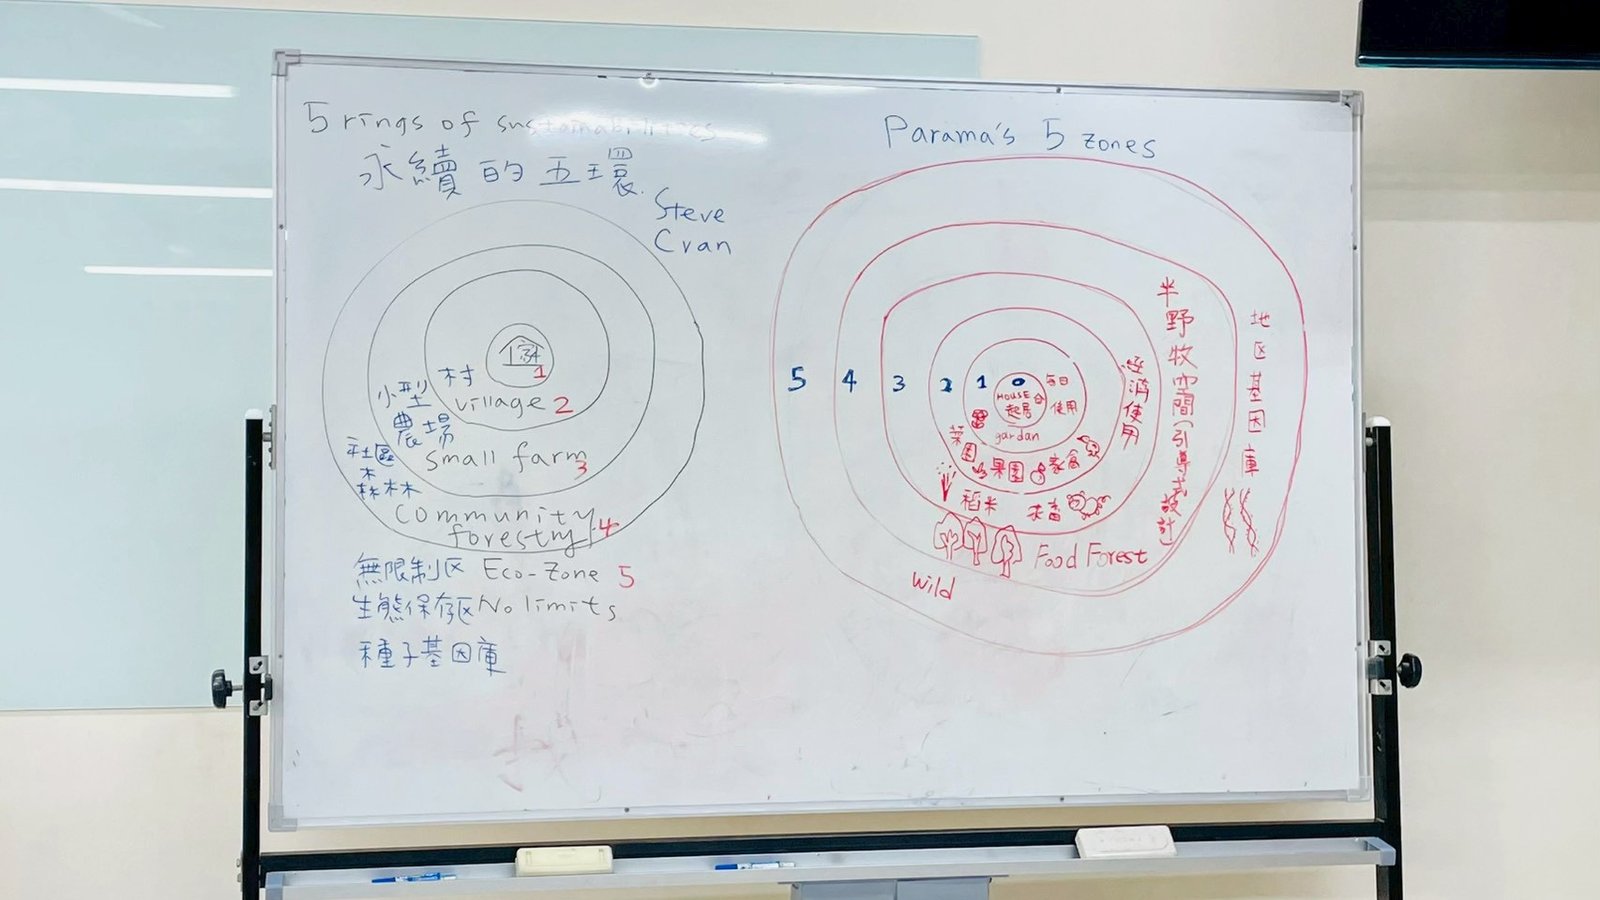 5 rings of sustainabilities
永續的五環
Steve
Cran
家
1
村
village 2
小型
農場
small farm
3
社區
森林
community
forestry 4
無限制区 Eco-Zone 5
生態保存区 No limits
種子基因庫
Parama's 5 zones
5 4 3 2 1 0
HOUSE
起居
每日
使用
gardan
菜園
果園
家禽
經濟使用
稻米
Food Forest
wild
半野牧空間(引導式設計)
地区基因庫